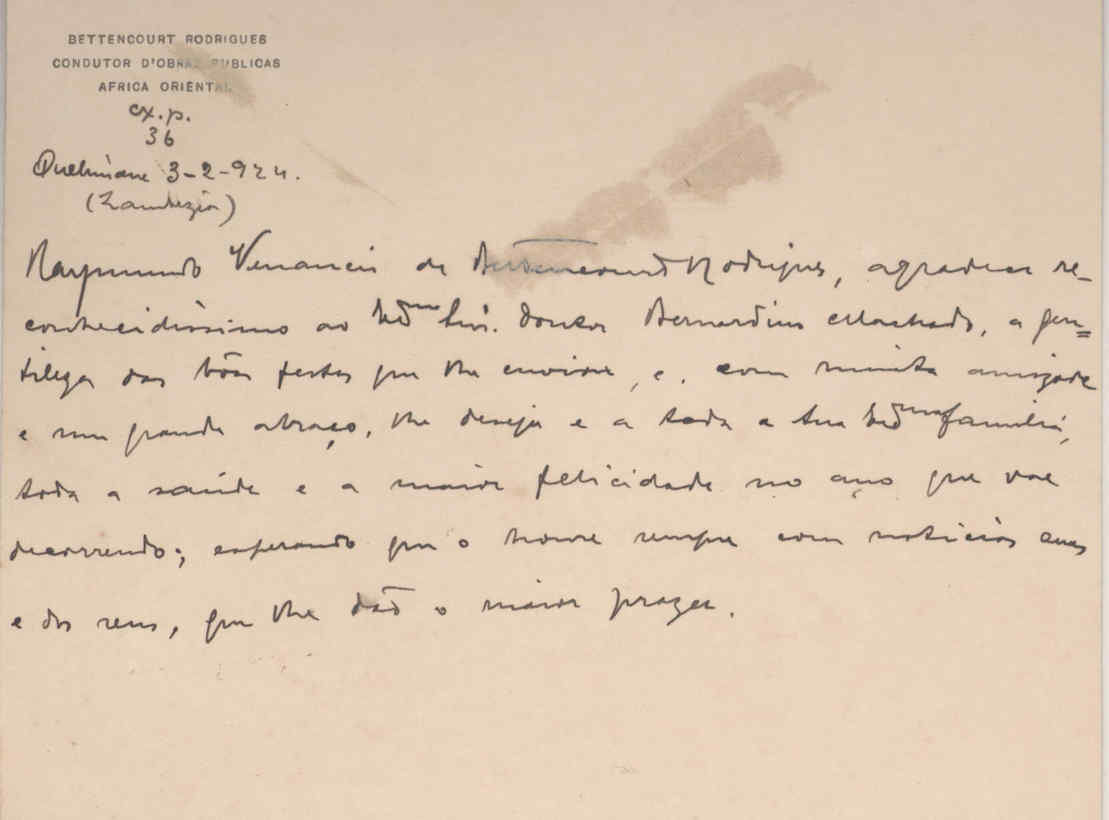 BETTENCOURT RODRIGUES
CONDUTOR D'OBRAS PUBLICAS
AFRICA ORIENTAL
cx. p.
36
Quelimane 3-2-924.
(Zambezia)
Raymundo Venancio de Bettencourt Rodrigues, agradece re-
conhecidissimo ao Snr. Doutor Bernardino Machado, a gen=
tileza das bôas festas que lhe enviou, e, com muita amizade
e um grande abraço, lhe deseja e a toda a sua familia,
toda a saúde e a maior felicidade no ano que vae
decorrendo; esperando que o honre sempre com noticias suas
e dos seus, que lhe dão o maior prazer.